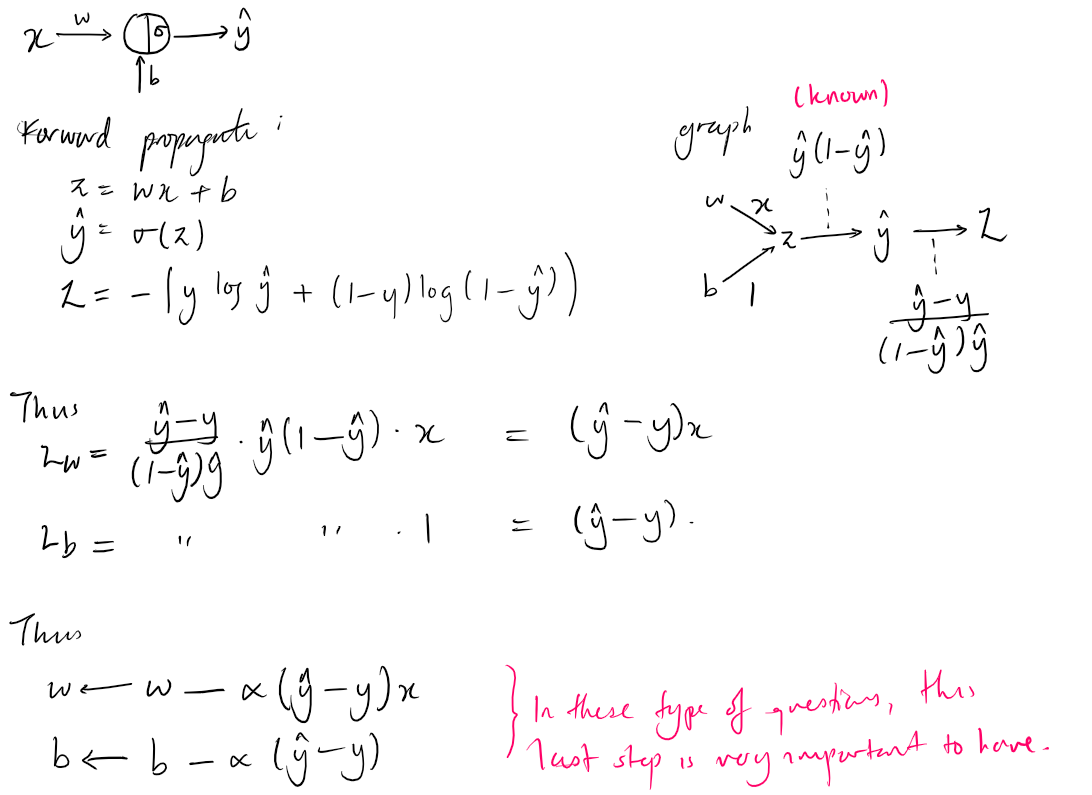 x w σ ŷ
b
Forward propagate :
z = wx + b
ŷ = σ(z)
L = -(y log ŷ + (1-y) log(1-ŷ))
graph
(known)
ŷ(1-ŷ)
w x
z → ŷ → L
b 1
ŷ-y
(1-ŷ)ŷ
Thus
L_w = \frac{ŷ-y}{(1-ŷ)ŷ} · ŷ(1-ŷ) · x = (ŷ-y)x
L_b = " " · 1 = (ŷ-y).
Thus
w ← w - α(ŷ-y)x
b ← b - α(ŷ-y)
} In these type of questions, this
last step is very important to have.